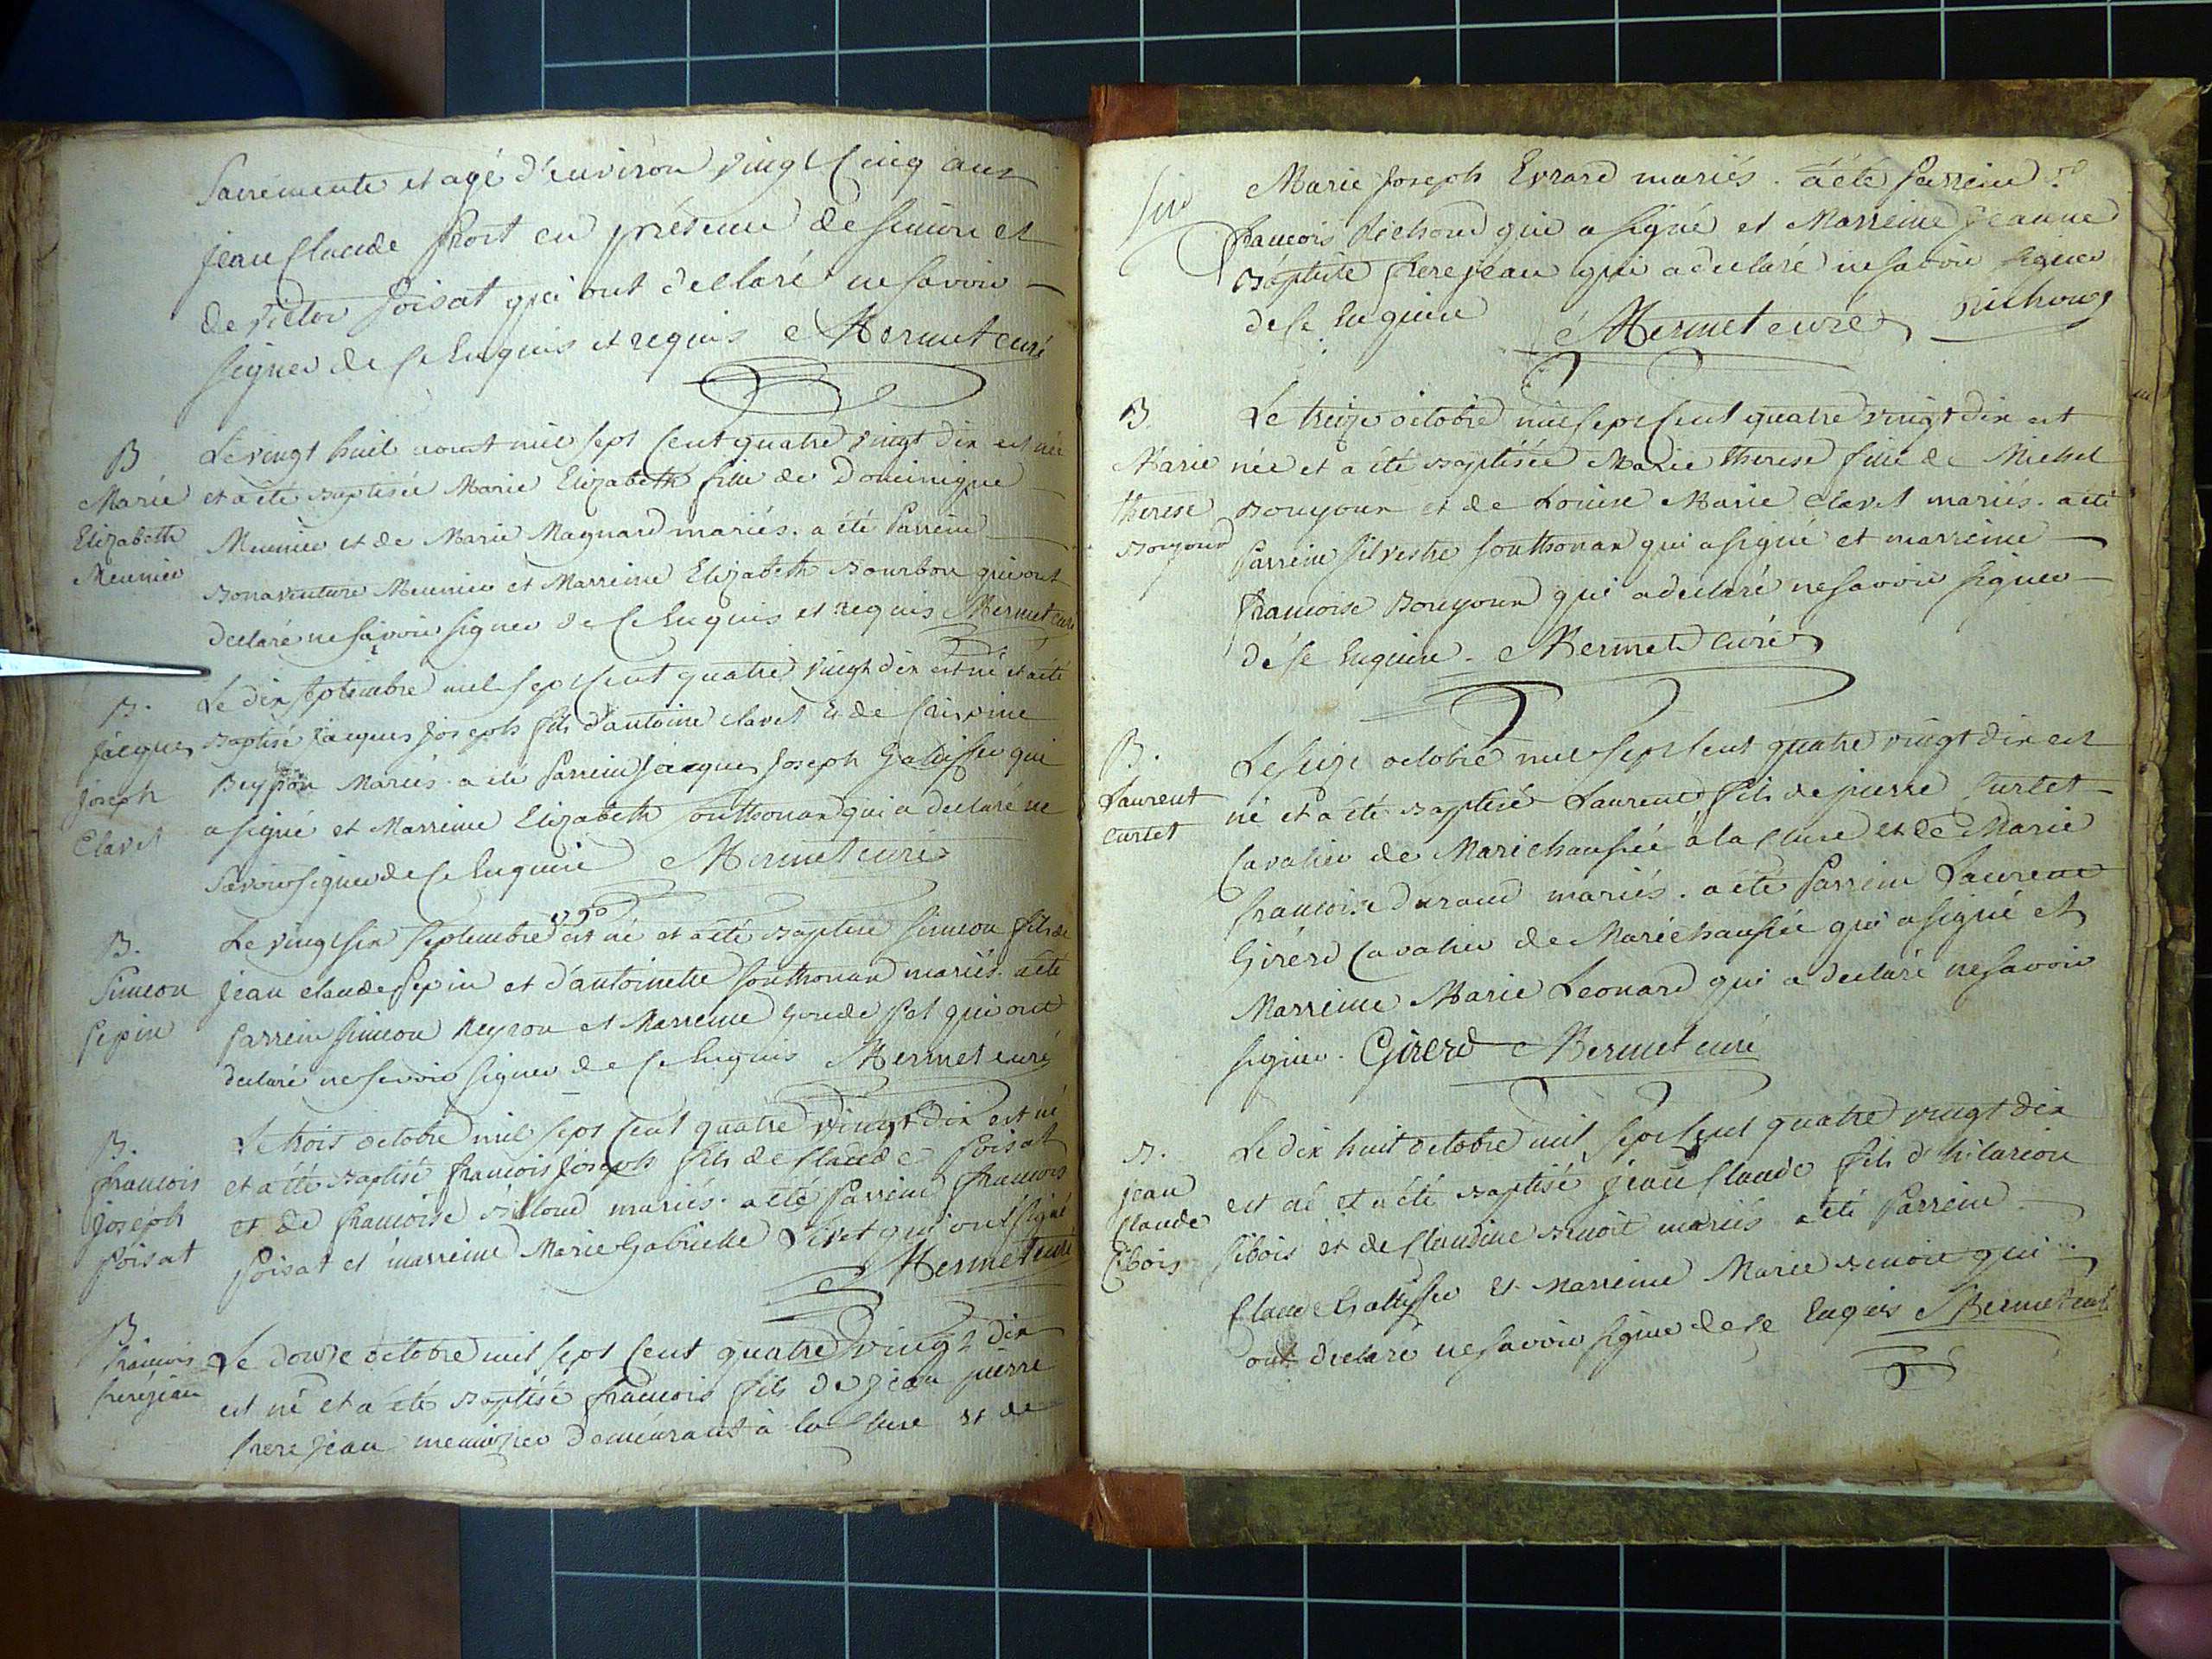 Sacremente et agé d'environ vingt Cinq ans
jean Claude frort en présence de simeon et
de victor Poisat qui ont declaré ne savoir
signer de Ce Enquis et requis Mermet curé
B Marie Elizabeth Meunier
Le vingt huit aoust mil sept Cent quatre vingt dix est née
et a été baptisée Marie Elizabeth fille de Dominique
Meunier et de Marie Magnard mariés. a été Parrein
Bonaventure Meunier et Marreine Elizabeth Bourbon qui ont
declaré ne savoir signer de Ce Enquis et requis Mermet curé
B. jacques joseph Clavet
Le dix septembre mil sept Cent quatre vingt dix est né et a été
baptisé jacques joseph fils d'antoine clavet et de
Mariés. a été Parrein jacques joseph Galliffer qui
a signé et Marreine Elizabeth Southonax qui a declaré ne
savoir signer de Ce Enquise Mermet curé
B. Simeon pepin
Le vingt six septembre 1790 est né et a été baptisé simeon fils de
jean claude pepin et d'antoinette Southonax mariés. a été
parrein simeon Reyron et Marreine qui ont
declaré ne savoir signer de Ce Enquis Mermet curé
B. francois joseph poisat
Le trois octobre mil sept Cent quatre vingt dix est né
et a été baptisé francois joseph fils de Claude Poisat
et de francoise mariés. a été Parrein francois
poisat et marreine Marie Gabrielle qui ont signé
Mermet curé
B francois frerejean
Le douze octobre mil sept Cent quatre vingt dix
est né et a été baptisé francois fils de jean pierre
frere jean menuisier demeurant à la Cluse et de
Marie Joseph Evrard mariés. a été parrein sr
francois Richond qui a signé et Marreine jeanne
Baptiste frere jean qui a declaré ne savoir signer
de Ce Enquise Mermet curé Richond
B. Marie therese Bonjour
Le treize octobre mil sept Cent quatre vingt dix est
née et a été baptisée Marie therese fille de Michel
Bonjour et de Louise Marie Clavet mariés. a été
Parrein silvestre Southonax qui a signé et marreine
francoise Bonjour qui a declaré ne savoir signer
de Ce Enquise. Mermet curé
B. Laurent curtet
Le seize octobre mil sept Cent quatre vingt dix est
né et a été baptisé Laurent fils de pierre Curtet
Cavalier de Marechaussée à la Cluse et de Marie
francoise durand mariés. a été Parrein Laurent
Girerd Cavalier de Maréchaussée qui a signé et
Marreine Marie Leonard qui a declaré ne savoir
signer. Girerd Mermet curé
B. jean Claude Cibois
Le dix huit octobre mil sept Cent quatre vingt dix
est né et a été baptisé jean Claude fils d'hilarion
Sibois et de Claudine Benoit mariés. a été Parrein
Claude Galliffer et Marreine Marie Benoit qui
ont declaré ne savoir signer de Ce Enquis Mermet curé